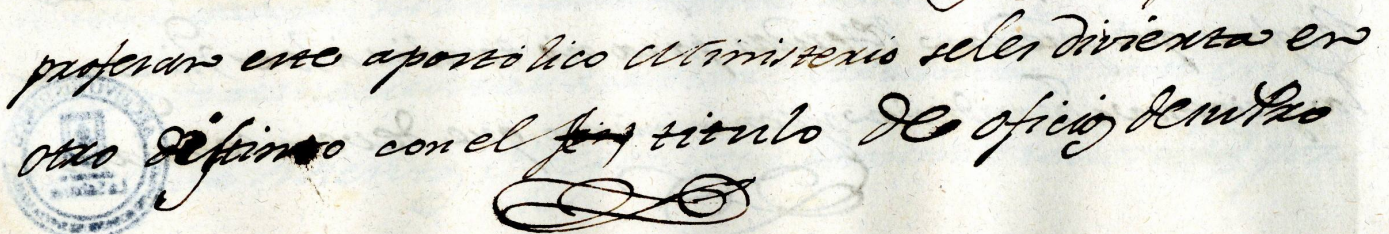 profesan este apostolico Ministerio seles divierta en
otro distinto con el titulo de oficios de nuestro